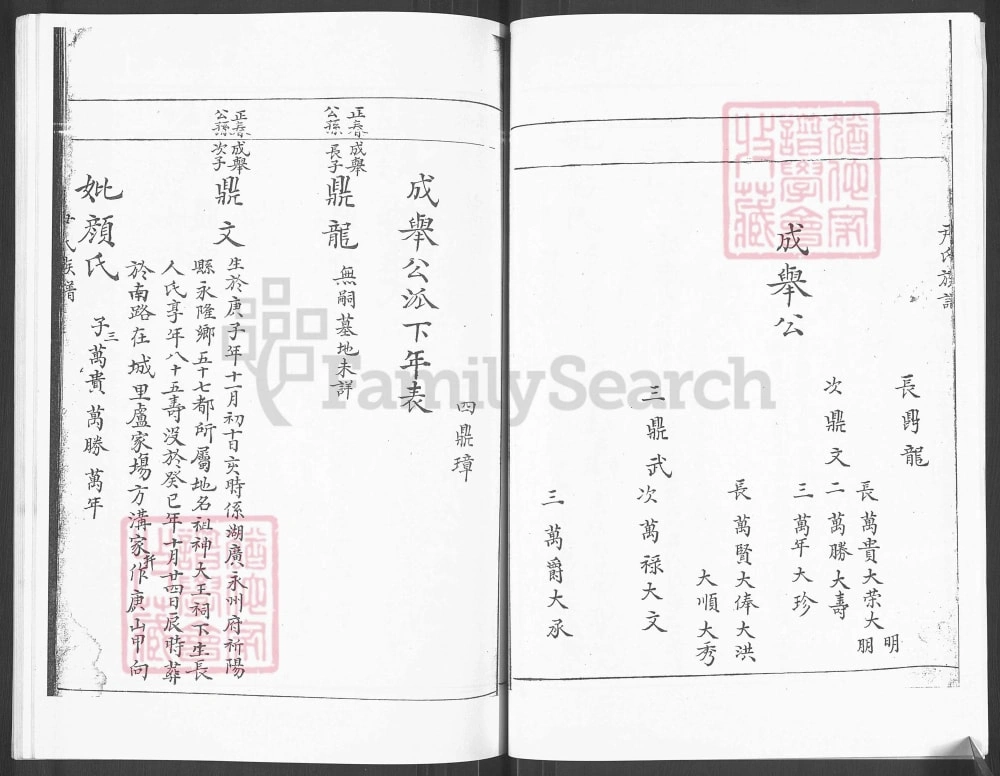 尹氏族譜
成舉公
長鼎龍
次鼎文
長萬貴大荣大明
大朋
二萬勝大壽
三萬年大珍
三鼎武
長萬賢大俸大洪
大順大秀
次萬禄大文
三萬爵大承
四鼎璋
成舉公派下年表
正春公孫
成舉長子
鼎龍
無嗣墓地未詳
正春公孫
成舉次子
鼎文
生於庚子年十一月初十日亥時係湖廣永州府祈陽
縣永隆鄉五十七都所屬地名祖神大王祠下生長
人氏享年八十五壽没於癸巳年十月廿四日辰時葬
於南路在城里盧家塲方溝家作庚山甲向
妣顏氏
子三萬貴萬勝萬年
氏族譜
FamilySearch
譜學會
收藏